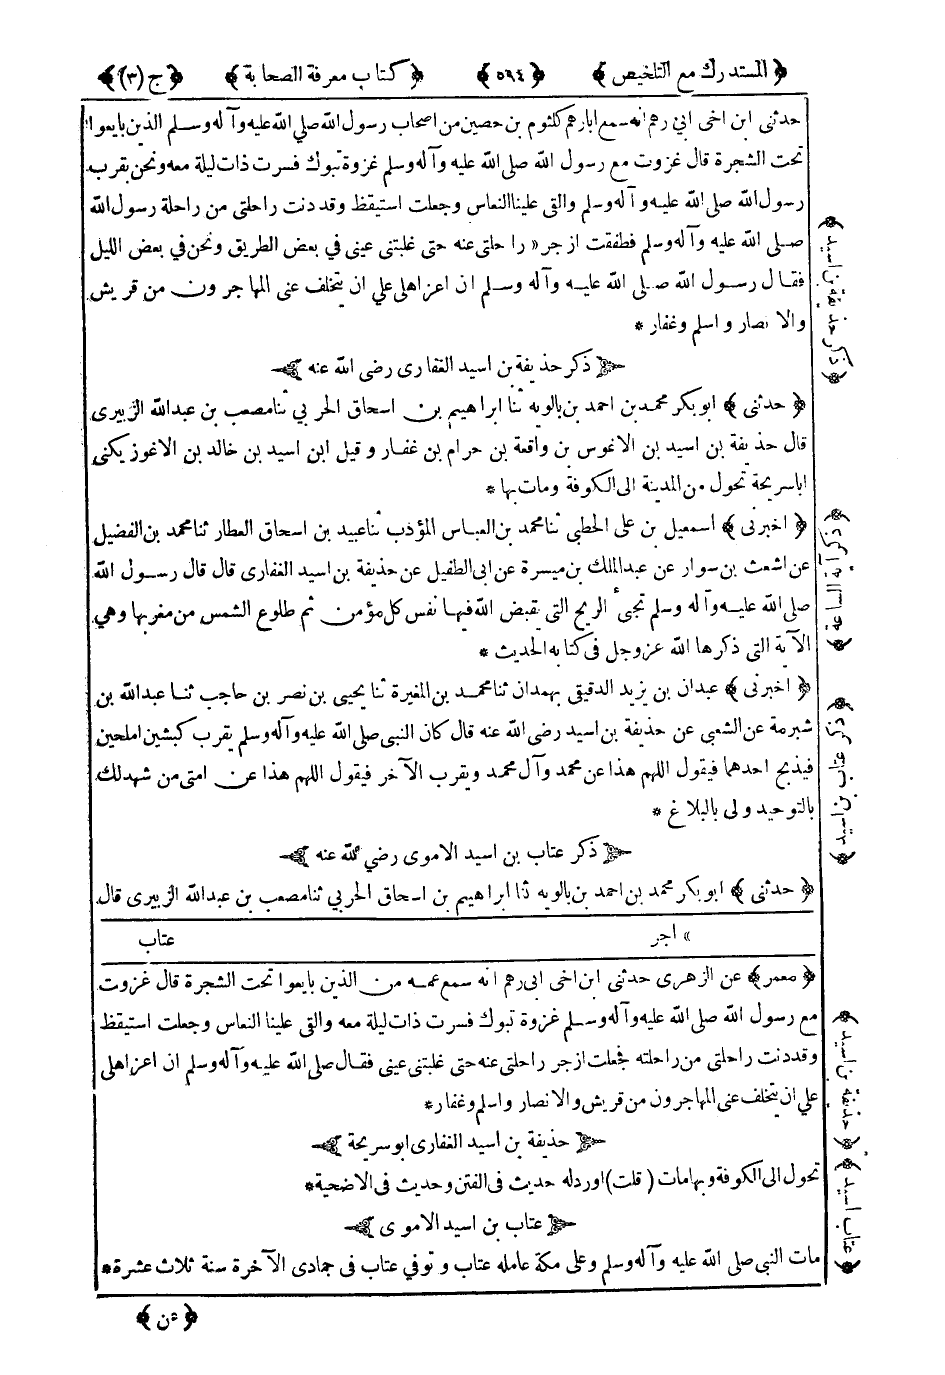 ﴿ المستدرك مع التلخيص ﴾ ﴿ ٥٩٤ ﴾ ﴿ كتاب معرفة الصحابة ﴾ ﴿ ج (٣) ﴾
حدثنى ابن اخى ابي رهم انه سمع ابارهم كلثوم بن حصين من اصحاب رسول الله صلي الله عليه وآله وسلم الذين بايعوا
تحت الشجرة قال غزوت مع رسول الله صلى الله عليه وآله وسلم غزوة تبوك فسرت ذات ليلة معه ونحن بقرب
رسول الله صلى الله عليه وآله وسلم والقى علينا النعاس وجعلت استيقظ وقد دنت راحلتى من راحلة رسول الله
صلى الله عليه وآله وسلم فطفقت ازجر « را حلتى عنه حتى غلبتنى عينى في بعض الطريق ونحن في بعض الليل
فقال رسول الله صلى الله عليه وآله وسلم ان اعز اهلى علي ان يتخلف عنى المهاجرون من قريش
والانصار و اسلم وغفار *
ذكر حذيفة بن اسيد الغفارى رضى الله عنه
﴿ حدثنى ﴾ ابو بكر محمد بن احمد بن بالويه ثنا ابراهيم بن اسحاق الحربي ثنا مصعب بن عبد الله الزبيرى
قال حذيفة بن اسيد بن الاغوس بن واقعة بن حرام بن غفار و قيل ابن اسيد بن خالد بن الاغوز يكنى
اباسريحة تحول من المدينة الى الكوفة ومات بها *
﴿ اخبرنى ﴾ اسمعيل بن على الخطبى ثنا محمد بن العباس المؤذب ثنا عبيد بن اسحاق العطار ثنا محمد بن الفضيل
عن اشعث بن سوار عن عبد الملك بن ميسرة عن ابى الطفيل عن حذيفة بن اسيد الغفارى قال قال رسول الله
صلى الله عليه وآله وسلم تجيء الريح التى يقبض الله فيها نفس كل مؤمن ثم طلوع الشمس من مغربها وهي
الآية التى ذكرها الله عز وجل فى كتابه الحديث *
﴿ اخبرنى ﴾ عبدان بن يزيد الدقيقى بهمدان ثنا محمد بن المغيرة ثنا يحيى بن نصر بن حاجب ثنا عبد الله بن
شبرمة عن الشعبى عن حذيفة بن اسيد رضى الله عنه قال كان النبى صلى الله عليه وآله وسلم يقرب كبشين املحين
فيذبح احدهما فيقول اللهم هذا عن محمد وآل محمد ويقرب الآخر فيقول اللهم هذا عن امتى من شهد لك
بالتوحيد و لى بالبلاغ *
ذكر عتاب بن اسيد الاموى رضي الله عنه
﴿ حدثنى ﴾ ابو بكر محمد بن احمد بن بالويه ثنا ابراهيم بن اسحاق الحربي ثنا مصعب بن عبد الله الزبيرى قال
« اجر عتاب
﴿ معمر ﴾ عن الزهرى حدثنى ابن اخى ابى رهم انه سمع عمه من الذين بايعوا تحت الشجرة قال غزوت
مع رسول الله صلى الله عليه وآله وسلم غزوة تبوك فسرت ذات ليلة معه والقى علينا النعاس وجعلت استيقظ
وقد دنت راحلتى من راحلته فجعلت ازجر راحلتى عنه حتى غلبتنى عينى فقال صلى الله عليه وآله وسلم ان اعز اهلى
علي ان يتخلف عنى المهاجرون من قريش والانصار واسلم وغفار *
حذيفة بن اسيد الغفارى ابو سريحة
تحول الى الكوفة وبها مات ( قلت) اورد له حديث فى الفتن وحديث فى الاضحية *
عتاب بن اسيد الاموى
مات النبى صلى الله عليه وآله وسلم وعلى مكة عامله عتاب و توفي عتاب فى جمادى الآخرة سنة ثلاث عشرة *
ذكر حذيفة بن اسيد
حذيفة بن اسيد
عتاب اسيد